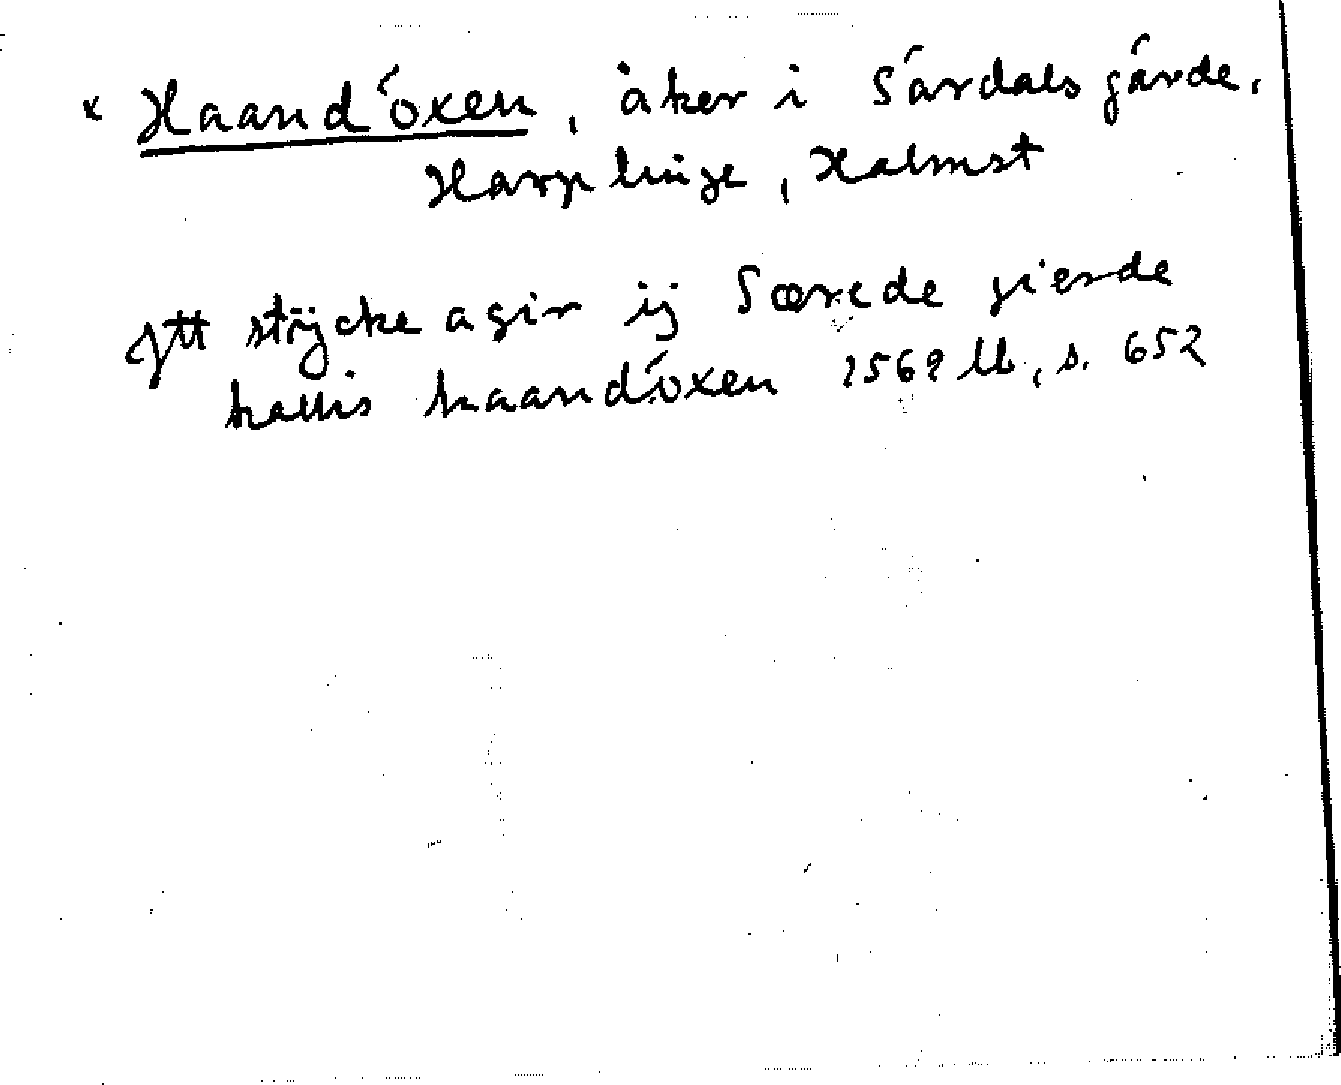 x Haandöxen, åker i Särdals gärde,
Harplinge, Halmst
Jtt stÿcke agir ij Særede gierde
kallis haandöxen 1569 lb, s. 652